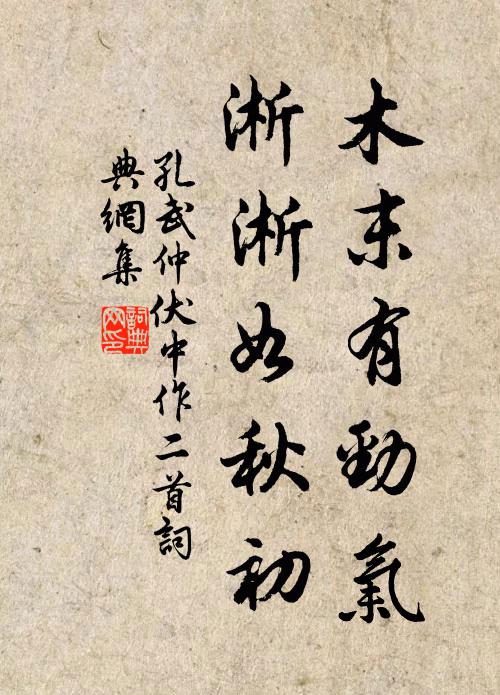 木末有勁氣
淅淅如秋初
孔武仲伏中作二首詞
典網集
詞典網印